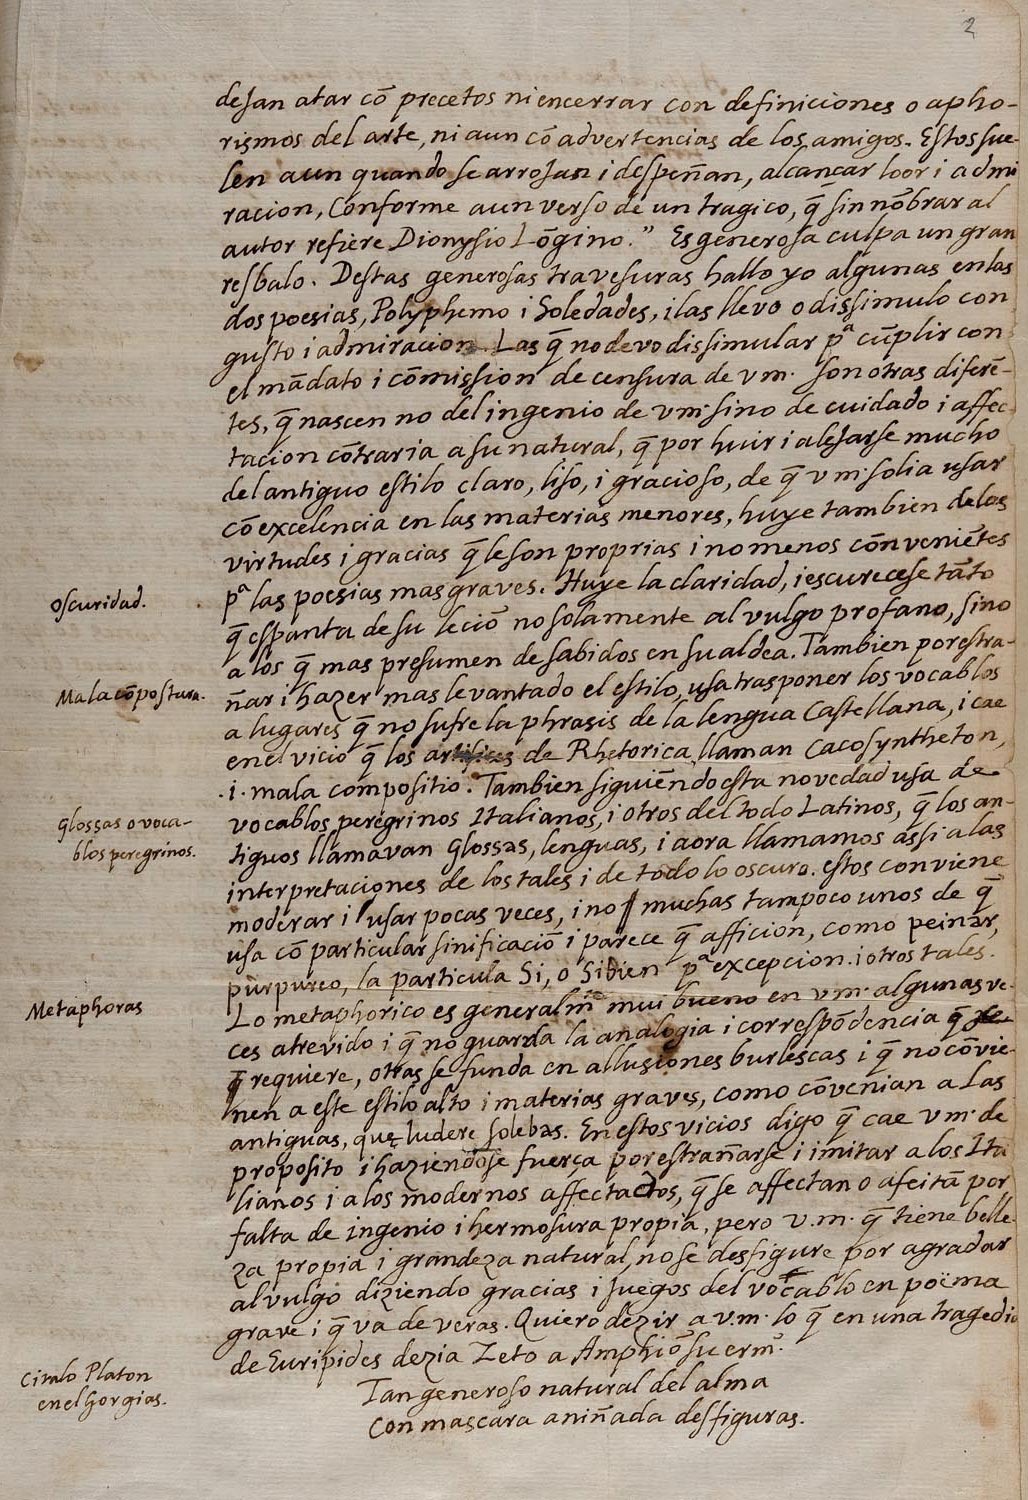 2
dejan atar cō precetos ni encerrar con definiciones o apho-
rismos del arte, ni aun cō advertencias de los amigos. Estos sue-
len aun quando se arrojan i despeñan, alcançar loor i admi
racion, Conforme a un verso de un tragico, q̄ sin nōbrar al
autor refiere Dionysio Lōgino." Es generosa culpa un gran
resbalo. Destas generosas travesuras hallo yo algunas en las
dos poesias, Polyphemo i Soledades, i las llevo o dissimulo con
gusto i admiracion. Las q̄ no devo dissimular pª cūplir con
el mādato i cōmission de censura de v m. son otras diferē-
tes, q̄ nascen no del ingenio de v m. sino de cuidado i affec-
tacion cōtraria a su natural, q̄ por huir i alejarse mucho
del antiguo estilo claro, liso, i gracioso, de q̄ v m. solia usar
cō excelencia en las materias menores, huye tambien de las
virtudes i gracias q̄ le son proprias i no menos cōveniētes
oscuridad.
pª las poesias mas graves. Huye la claridad, i escurecese tāto
q̄ espanta de su leciō no solamente al vulgo profano, sino
a los q̄ mas presumen de sabidos en su aldea. Tambien por estra-
Mala cōpostura.
ñar i hazer mas levantado el estilo, usa trasponer los vocablos
a lugares q̄ no sufre la phrasis de la lengua Castellana, i cae
en el vicio q̄ los artifices de Rhetorica llaman Cacosyntheton,
.i. mala compositio. Tambien siguiēdo esta novedad usa de
Glossas o voca-
blos peregrinos.
vocablos peregrinos Italianos, i otros del todo Latinos, q̄ los an-
tiguos llamavan Glossas, lenguas, i aora llamamos assi a las
interpretaciones de los tales i de todo lo oscuro. estos conviene
moderar i usar pocas veces, i no muchas tampoco unos de q̄
usa cō particular sinificaciō i parece q̄ afficion, como peinar,
purpureo, la particula Si, o Si bien pª excepcion. i otros tales.
Metaphoras
Lo metaphorico es generalmᵗᵉ mui bueno en v m. algunas ve-
ces atrevido i q̄ no guarda la analogia i correspōdencia q̄ se
q̄ requiere, otras se funda en allusiones burlescas i q̄ no cōvie-
nen a este estilo alto i materias graves, como cōvenian a las
antiguas, quę ludere solebas. En estos vicios digo q̄ cae v m. de
proposito i haziendose fuerça por estrañarse i imitar a los Ita
lianos i a los modernos affectados, q̄ se affectan o afeitā por
falta de ingenio i hermosura propia. pero v.m. q̄ tiene belle-
za propia i grandeza natural, no se desfigure por agradar
al vulgo diziendo gracias i juegos del vocablo en poëma
grave i q̄ va de veras. Quiero dezir a v.m. lo q̄ en una tragedia
de Euripides dezia Zeto a Amphiō su erm.º
Citalo Platon
en el Gorgias.
Tan generoso natural del alma
Con mascara aniñada desfiguras.